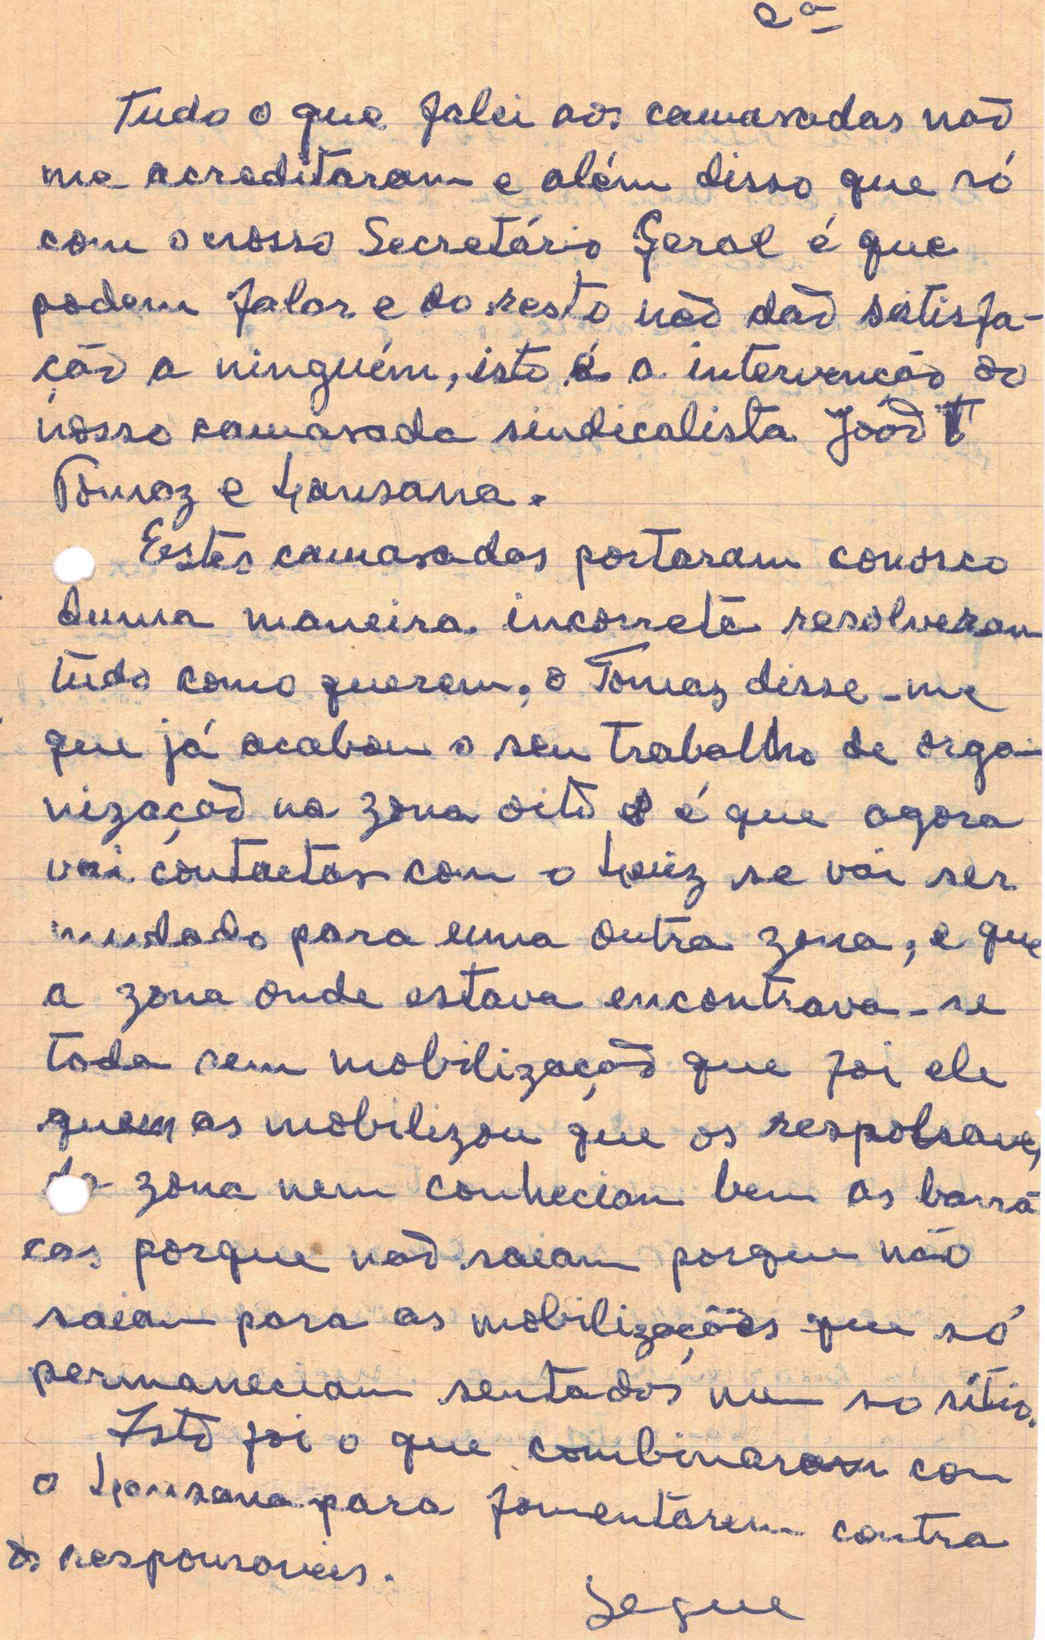 2ª
Tudo o que falei aos camaradas não
me acreditaram e além disso que só
com o nosso Secretário Geral é que
podem falar e do resto não dão satisfa-
ção a ninguém, isto é a intervenção do
nosso camarada sindicalista João T
Tomaz e Lansana.
Estes camaradas portaram conosco
duma maneira incorreta resolveram
tudo como querem, o Tomaz disse-me
que já acabou o seu trabalho de orga-
nização na zona oito 8 é que agora
vai contactar com o Luiz se vai ser
mudado para uma outra zona, e que
a zona onde estava encontrava-se
toda sem mobilização que foi ele
quem as mobilizou que os respolsave,
da zona nem conheciam bem as barra
cas porque não saiam porque não
saiam para as mobilizações que só
permaneciam sentados num so sitio.
Isto foi o que combinaram com
o Lansana para fomentarem contra
os responsaveis.
Segue